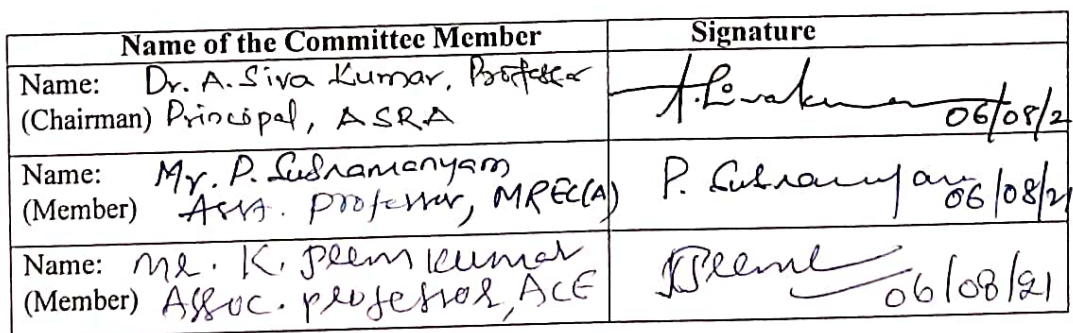 Name of the Committee Member Signature
Name: Dr. A. Siva Kumar, Professor
(Chairman) Principal, ASRA
A. Sivakumar 06/08/2
Name: Mr. P. Subramanyam
(Member) Asst. Professor, MREC(A)
P. Subramanyam 06/08/21
Name: Mr. K. Prem Kumar
(Member) Assoc. professor, ACE
06/08/21